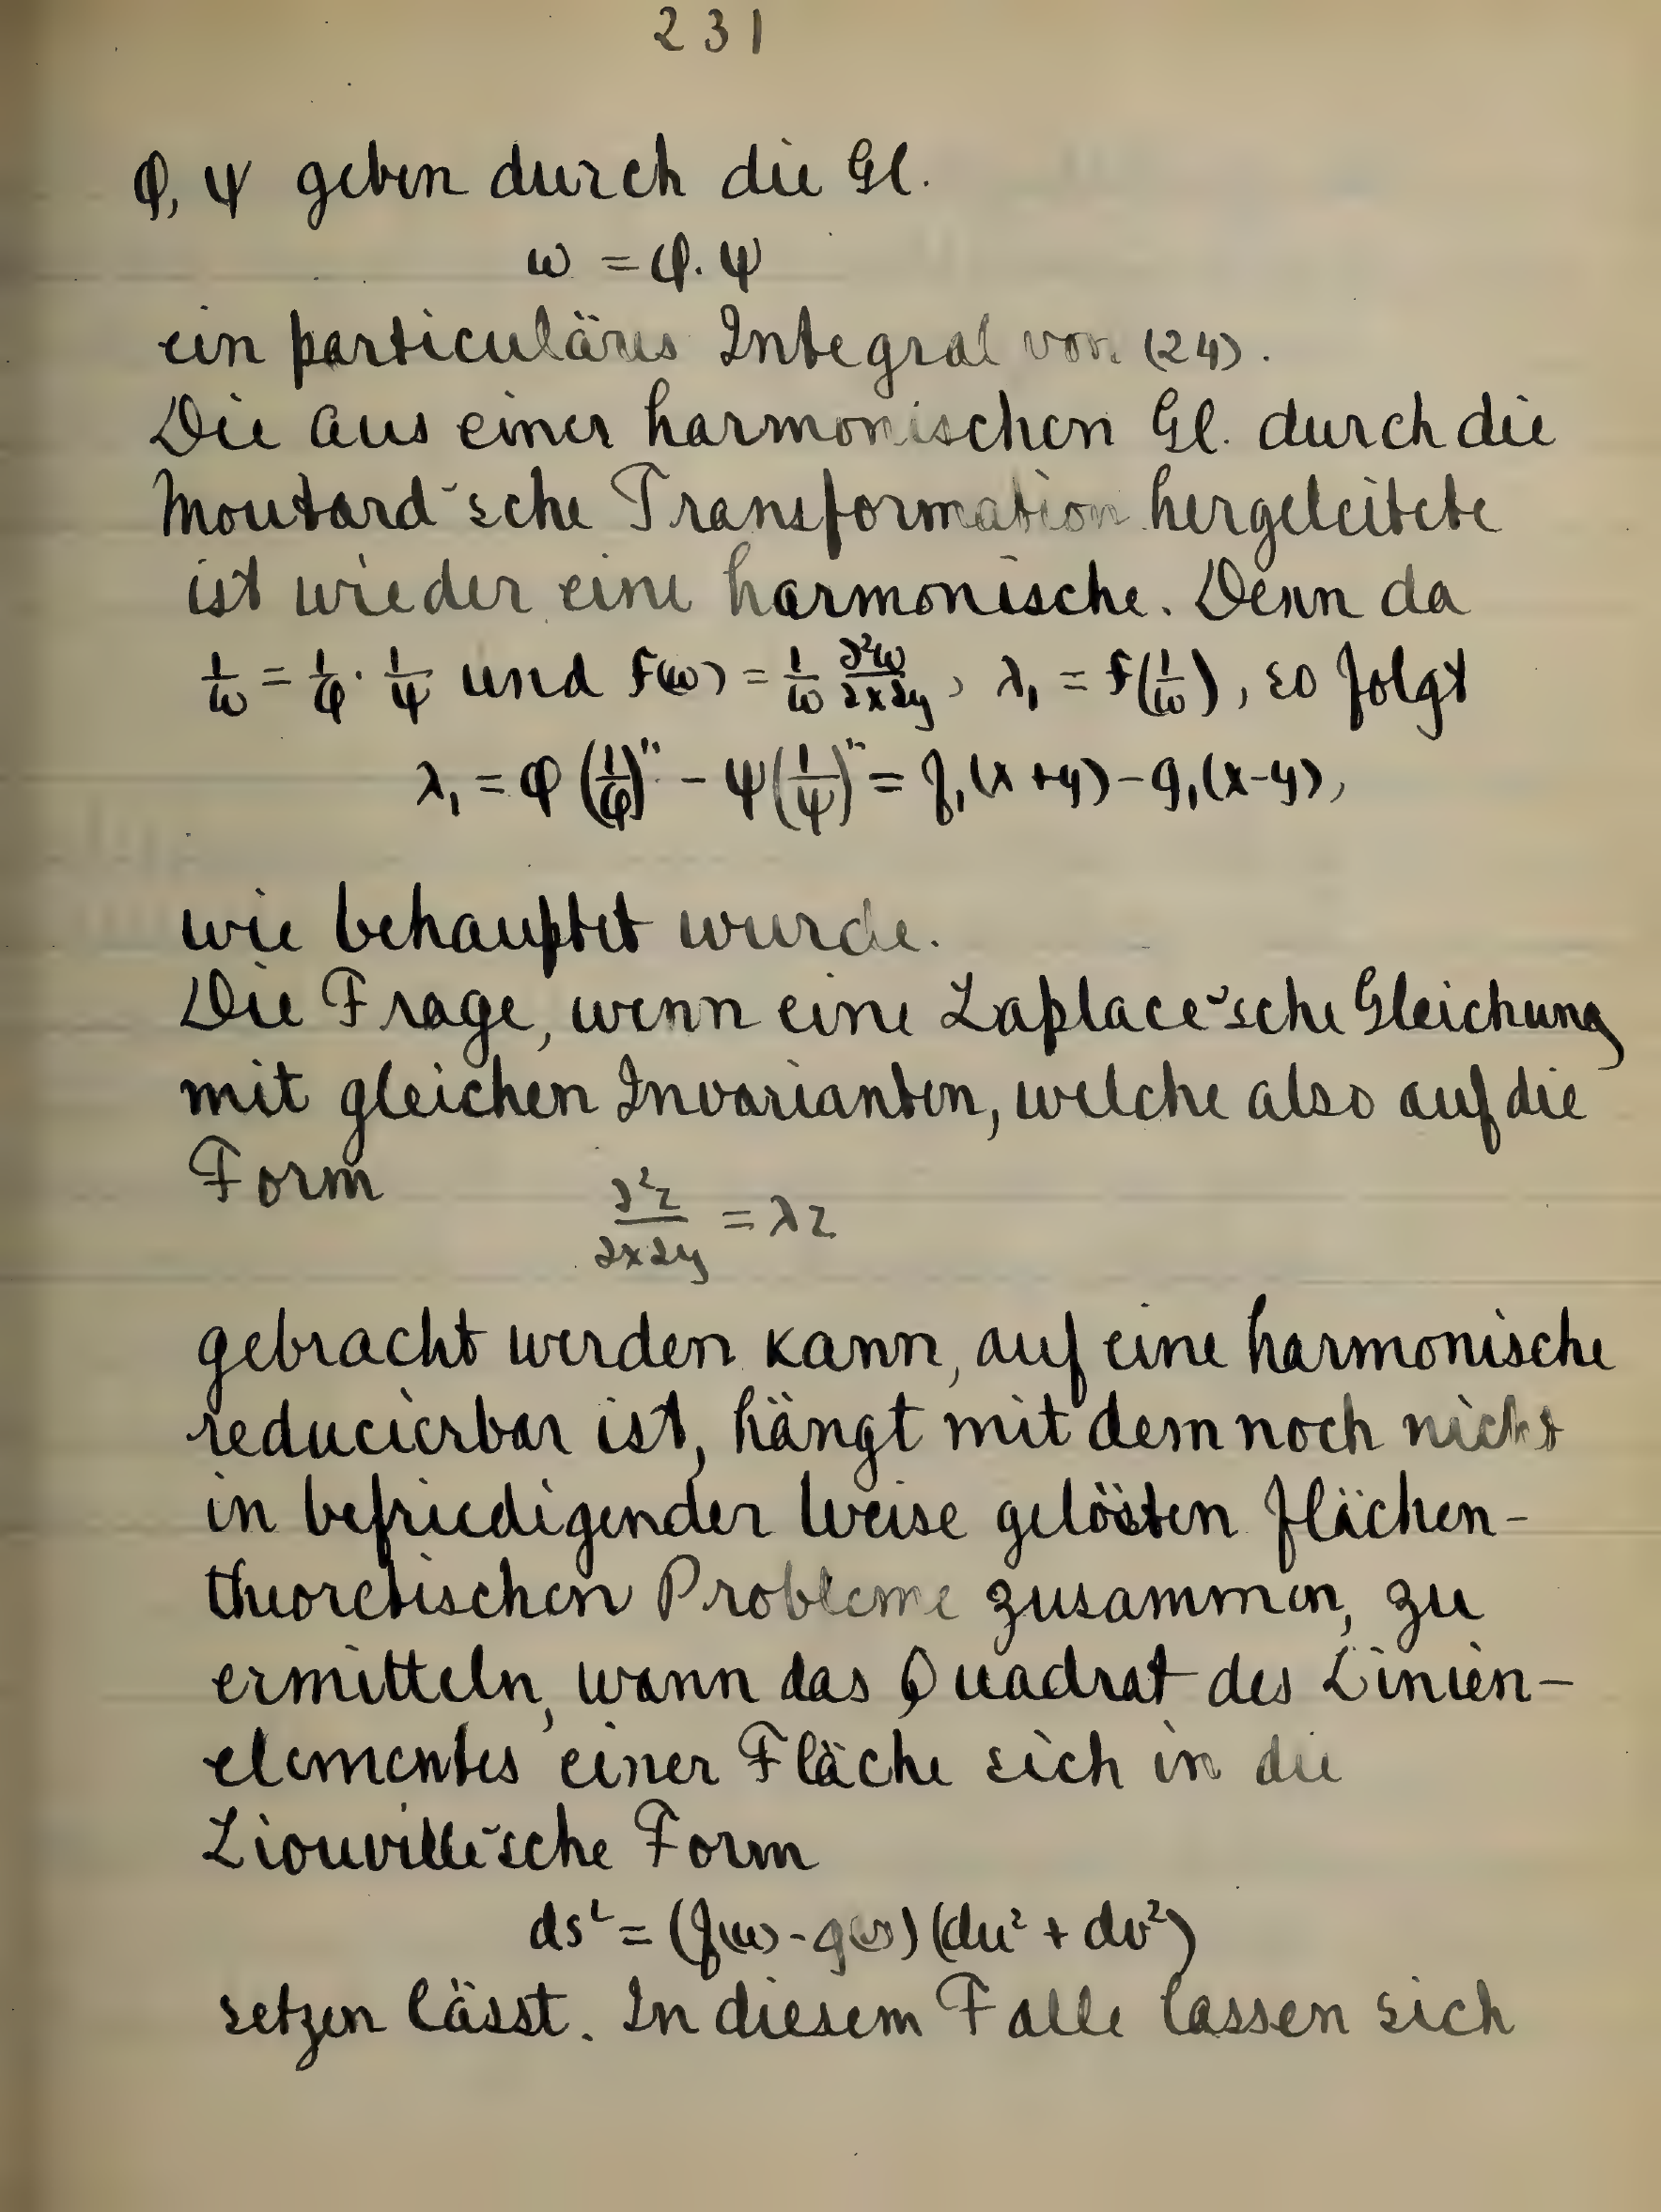 231
φ, ψ geben durch die Gl.
ω = φ. ψ
ein particuläres Integral von (24).
Die aus einer harmonischen Gl. durch die
Moutard'sche Transformation hergeleitete
ist wieder eine harmonische. Denn da
1/ω = 1/φ · 1/ψ und F(ω) = 1/ω ∂²ω/∂x∂y, λ₁ = F(1/ω), so folgt
λ₁ = φ (1/φ)" - ψ (1/ψ)" = f₁(x+y) - g₁(x-y),
wie behauptet wurde.
Die Frage, wenn eine Laplace'sche Gleichung
mit gleichen Invarianten, welche also auf die
Form
∂²z/∂x∂y = λz
gebracht werden kann, auf eine harmonische
reducierbar ist, hängt mit dem noch nicht
in befriedigender Weise gelösten flächen-
theoretischen Probleme zusammen, zu
ermitteln, wann das Quadrat des Linien-
elementes einer Fläche sich in die
Liouville'sche Form
ds² = (f(u) - g(v)) (du² + dv²)
setzen lässt. In diesem Falle lassen sich